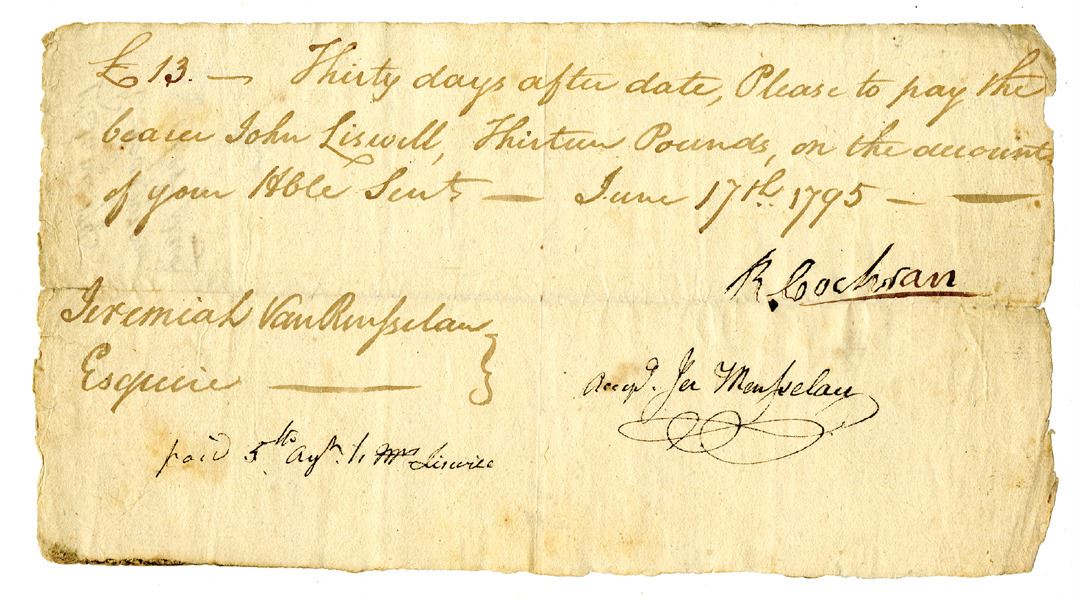 £ 13. — Thirty days after date, Please to pay the
bearer John Liswell, Thirteen Pounds, on the account
of your Hble Servt — June 17th 1795 —
R Cochran
Jeremiah Van Rensselaer
Esquire —
Accepd. Jer V Rensselaer
paid 5th Augt. to Mr Liswell